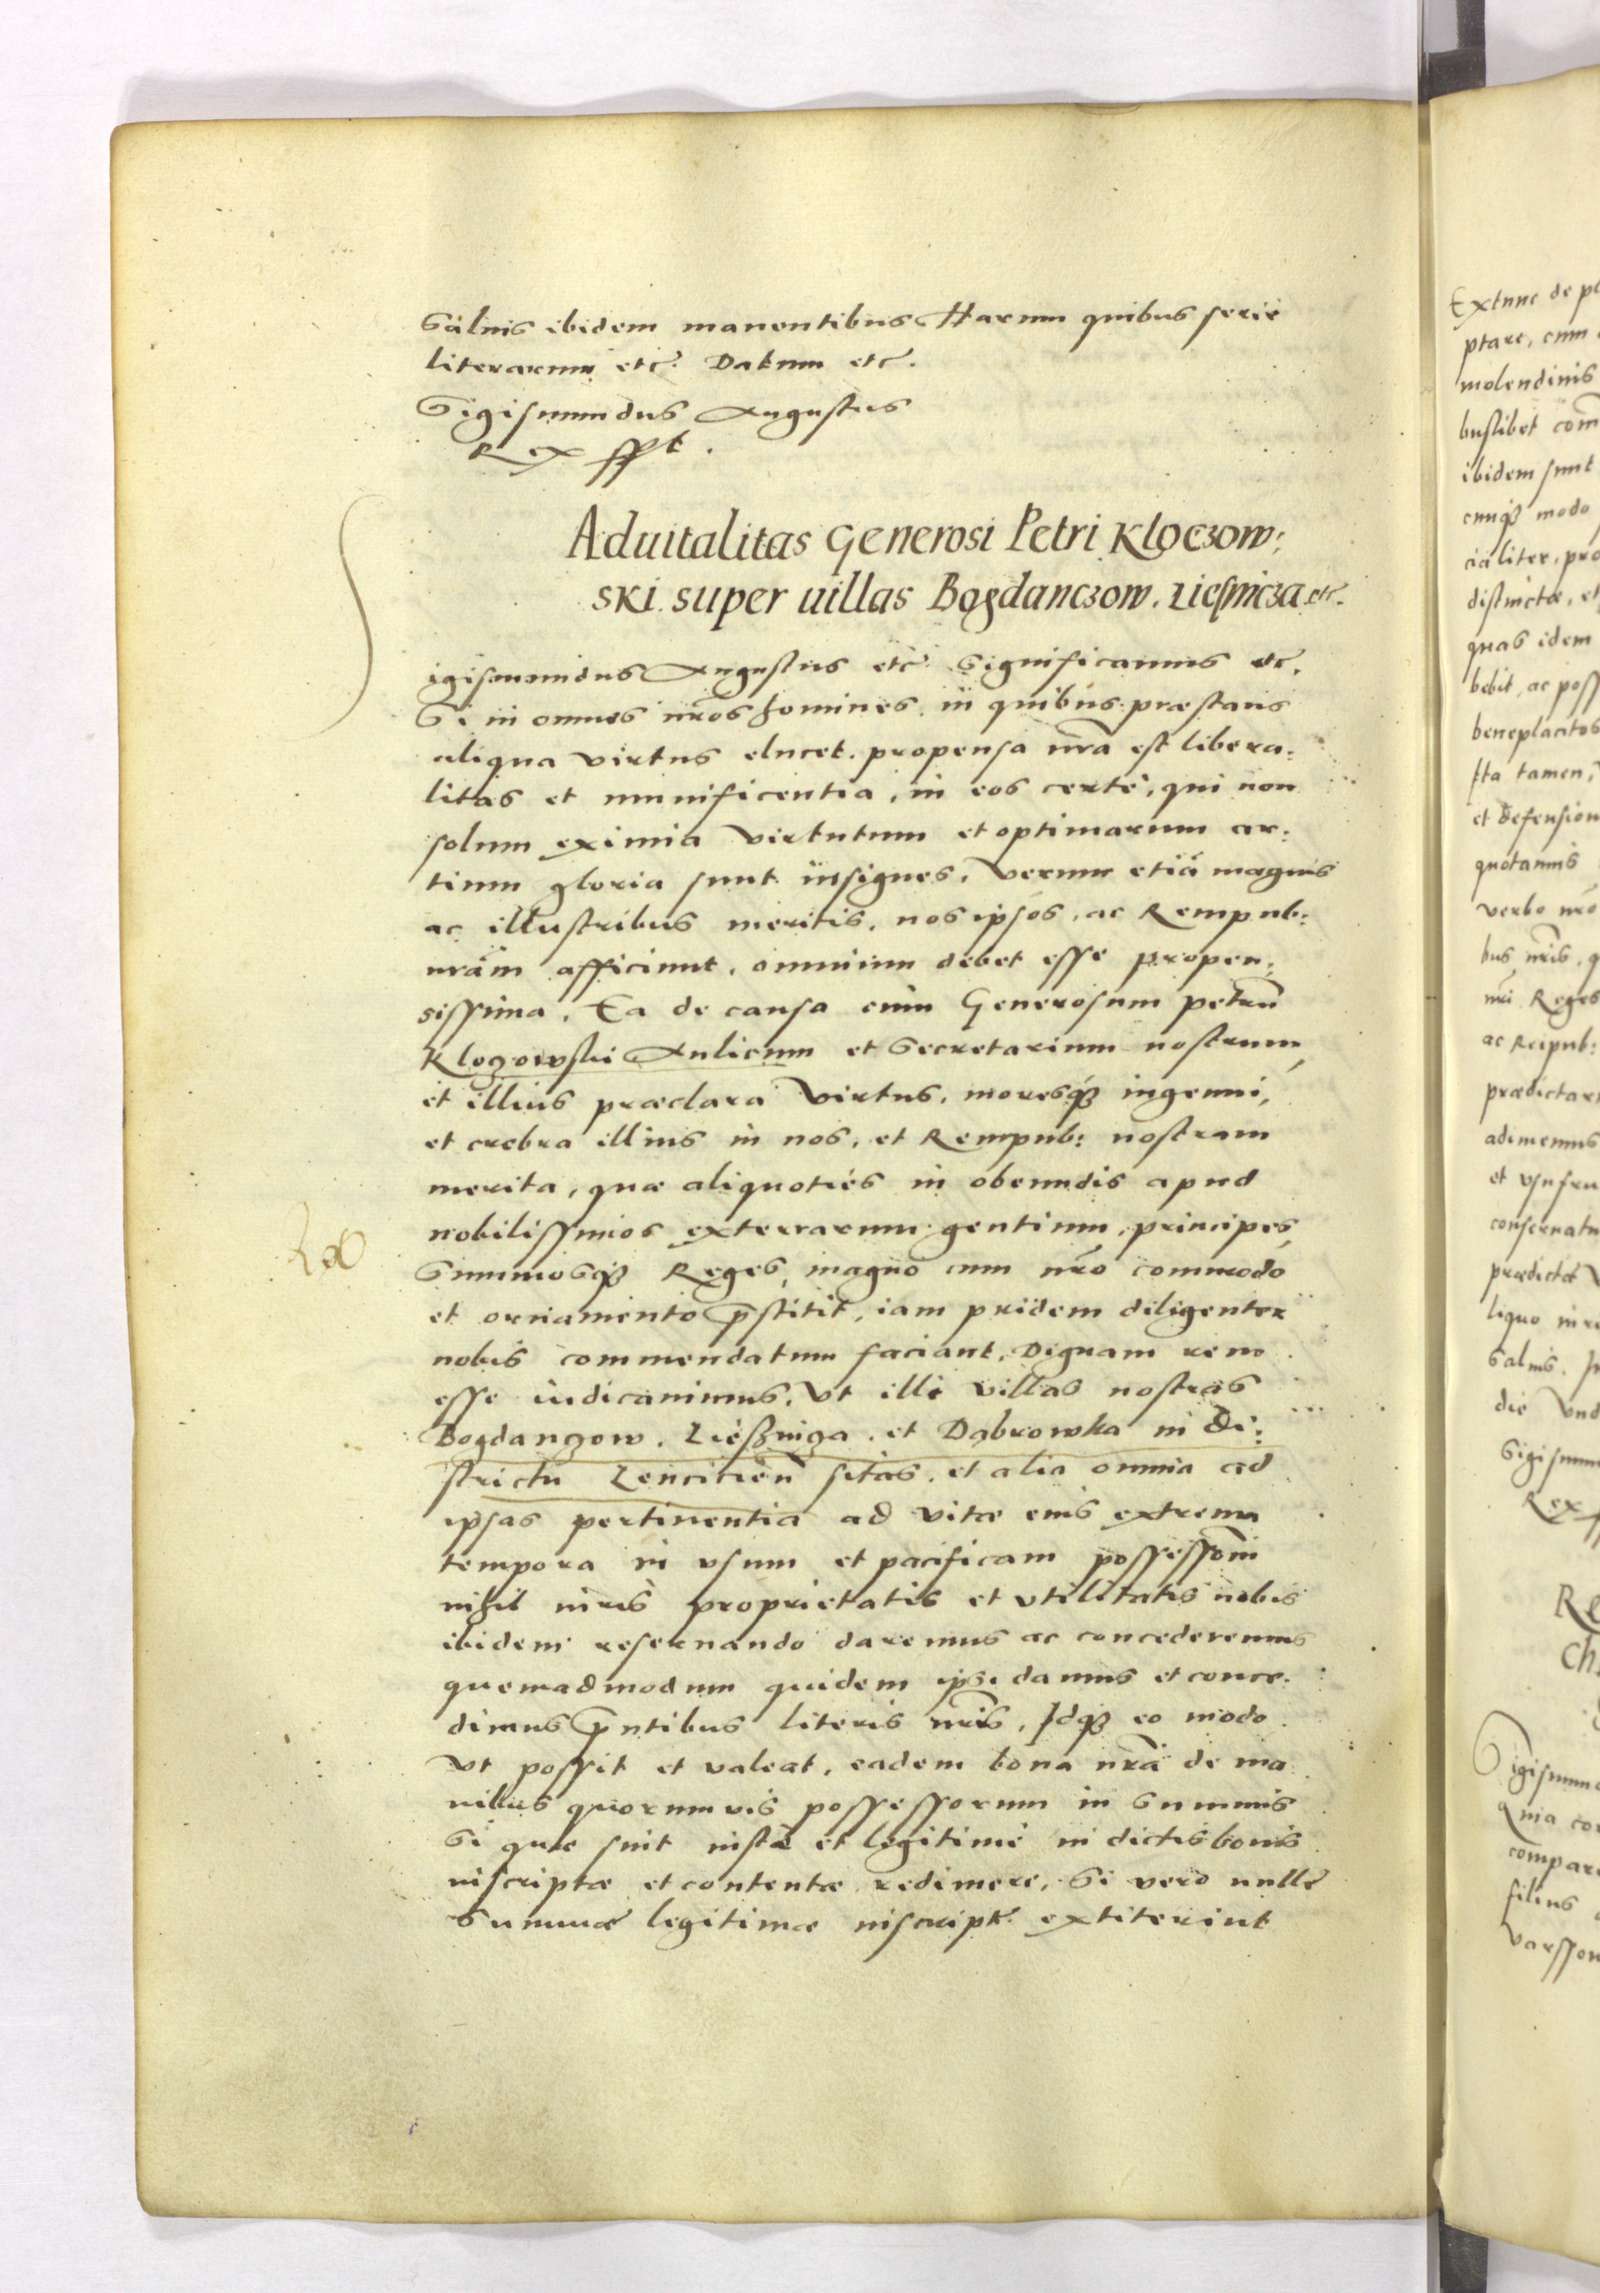 Saluis ibidem manentibus Harum quibus serie
literarum etc. Datum etc.
Sigismundus Augustus
Rex sspt.
Aduitalitas Generosi Petri Kloczow:
ski super uillas Bogdanczow. Liesnicza etc.
Sigismundus Augustus etc. Significamus etc.
Si in omnes nros homines, in quibus præstans
aliqua virtus elucet, propensa nra est libera:
litas et munificentia, in eos certè, qui non
solum eximia virtutum et optimarum ar:
tium gloria sunt insignes, verum etiã magnis
ac illustribus meritis, nos ipsos, ac Rempub:
nram afficiunt, omnium debet esse propen:
sissima. Ea de causa cum Generosum Petrũ
Kloczowski Aulicum et Secretarium nostrum,
et illius præclara virtus, moresq3 ingenui,
et crebra illius in nos, et Rempub: nostram
merita, quæ aliquoties in obeundis apud
nobilissimos exterrarum gentium, principes,
Summosq3 Reges, magno cum nro commodo
et ornamento pstitit, iam pridem diligenter
nobis commendatum faciant, Dignam rem
esse iudicauimus, Vt illi villas nostras
Bogdanczow, Liesznicza, et Dąbrowka in di:
strictu Lencicien sitas, et alia omnia ad
ipsas pertinentia ad vitæ eius extrema
tempora in vsum et pacificam possessõni
nihil iuris proprietatis et vtilitatis nobis
ibidem reseruando daremus ac concederemus
quemadmodum quidem ipsi damus et conce:
dimus pntibus literis nris, Idq3 eo modo
Vt possit et valeat, eadem bona nra de ma
nibus quorumuis possessorum in Summis
Si quæ sint iustæ et legitime in dictis bonis
inscriptæ et contentæ redimere, Si vero nulle
Summæ legitimæ inscript. extiterint
Extunc de
ptare, cum
molendinis
buslibet
ibidem sunt
cunq3 modo
cialiter, pro
distinctæ, et
quas idem
bebit, ac
beneplacitos
Ita tamen,
et defension
quotannis
verbo nro
bus nris,
nri Reges
ac Reipub:
prædictar
adimemus
et vsufru
conseruatu
prædictæ
liquo
Saluis.
die
Sigismun
Rex
Re
Sigismun
Quia
compar
filius
varsson